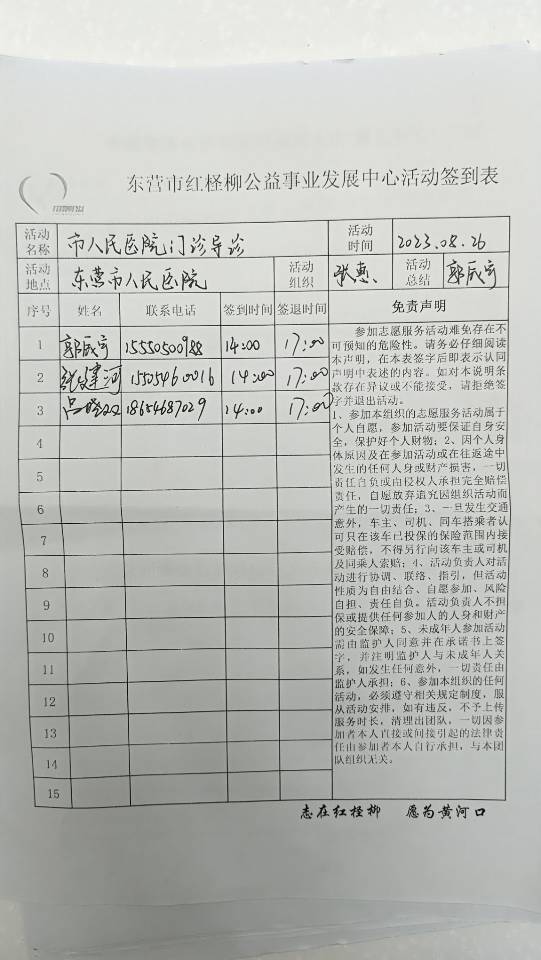 东营市红柽柳公益事业发展中心活动签到表
活动名称 市人民医院门诊导诊 活动时间 2023.08.26
活动地点 东营市人民医院 活动组织 张惠 活动总结 郭辰宇
序号 姓名 联系电话 签到时间 签退时间 免责声明
1 郭辰宇 15550500988 14:00 17:00
2 建河 15505460016 14:00 17:00
3 吕 18654687029 14:00 17:00
4
5
6
7
8
9
10
11
12
13
14
15
参加志愿服务活动难免存在不
可预知的危险性。请务必仔细阅读
本声明，在本表签字后即表示认同
声明中表述的内容。如对本说明条
款存在异议或不能接受，请拒绝签
字并退出活动。
1、参加本组织的志愿服务活动属于
个人自愿，参加活动要保证自身安
全，保护好个人财物；2、因个人身
体原因及在参加活动或在往返途中
发生的任何人身或财产损害，一切
责任自负或由侵权人承担完全赔偿
责任，自愿放弃追究因组织活动而
产生的一切责任；3、一旦发生交通
意外，车主、司机、同车搭乘者认
可只在该车已投保的保险范围内接
受赔偿，不得另行向该车主或司机
及同乘人索赔；4、活动负责人对活
动进行协调、联络、指引，但活动
性质为自由结合、自愿参加、风险
自担、责任自负。活动负责人不担
保或提供任何参加人的人身和财产
的安全保障；5、未成年人参加活动
需由监护人同意并在承诺书上签
字，并注明监护人与未成年人关
系，如发生任何意外，一切责任由
监护人承担；6、参加本组织的任何
活动，必须遵守相关规定制度，服
从活动安排，如有违反，不予上传
服务时长，清理出团队，一切因参
加者本人直接或间接引起的法律责
任由参加者本人自行承担，与本团
队组织无关。
志在红柽柳 愿为黄河口